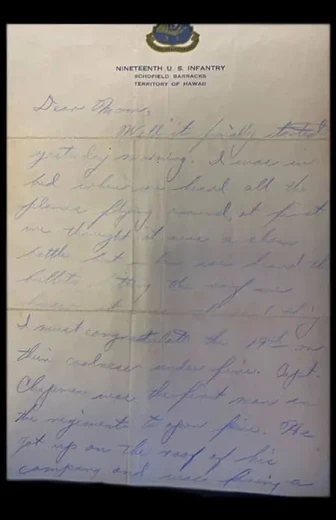 NINETEENTH U. S. INFANTRY
SCHOFIELD BARRACKS
TERRITORY OF HAWAII
Dear Mom,
Well it finally started
yesterday morning. I was in
bed when we heard all the
planes flying around, at first
we thought it was a sham
battle but we heard the
bullets hitting the roof we
knew it was
I must congratulate the 19th on
their coolness under fire. Capt.
Chapman was the first man in
the regiment to open fire. He
got up on the roof of his
company and was firing a